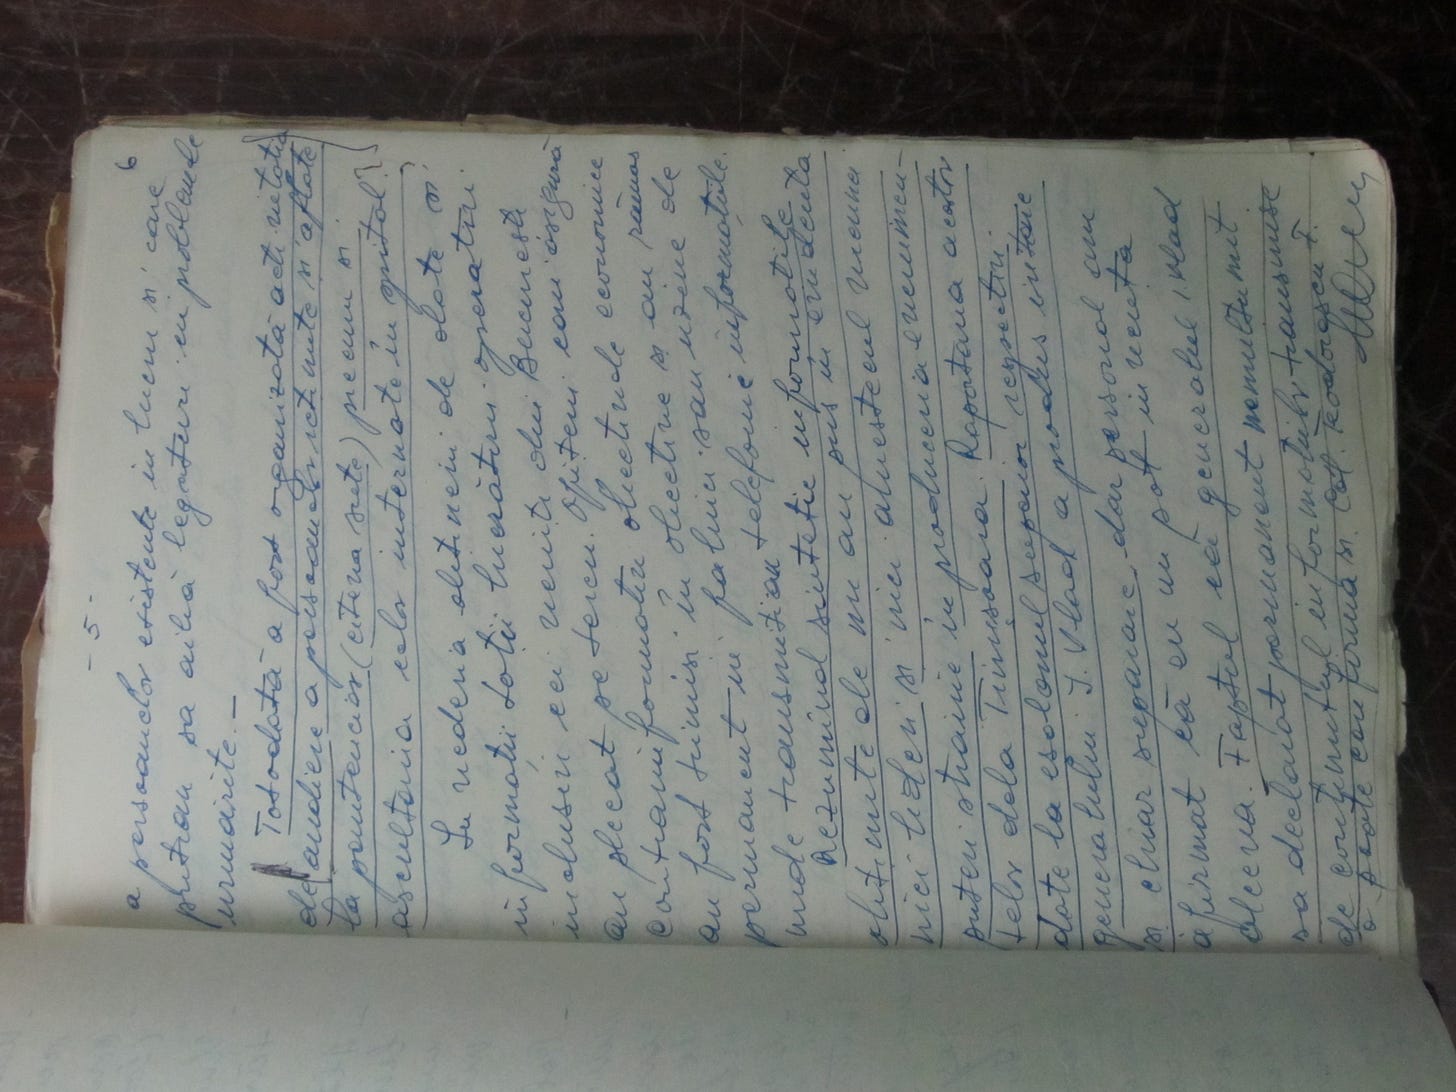 - 5 -
6
a persoanelor existente in lucru si care
puteau sa aibă legături cu problemele
urmărite. -
Totodată a fost organizată activitatea
de audiere a persoanelor retinute si aflate
la penitenciar (citeva sute) precum si
ascultarea celor internate in spital.
In vederea obtinerii de date si
informatii totii lucrătorii operativi
inclusiv cei veniti din Bucuresti
au plecat pe teren. Ofiterii care asigură
contrainformativ obiectivele economice
au fost trimisi in obiective si au rămas
permanent in fabrici sau uzine de
unde transmiteau telefonic informatiile.
Rezumînd sintetic informatiile
obtinute de noi au pus in evidenta
nici lideri si nici amestecul vreunei
puteri străine in producerea evenimen-
telor dela Timisoara. Raportarea acestor
date la esalonul superior respectiv
generalului I. Vlad a produs iritare
si chiar supărare dar personal am
afirmat că eu nu pot inventa
altceva. Faptul că generalul Vlad
sa declarat permanent nemultumit
de continutul informatiilor transmise
o poate confirma si col. Teodorescu F.